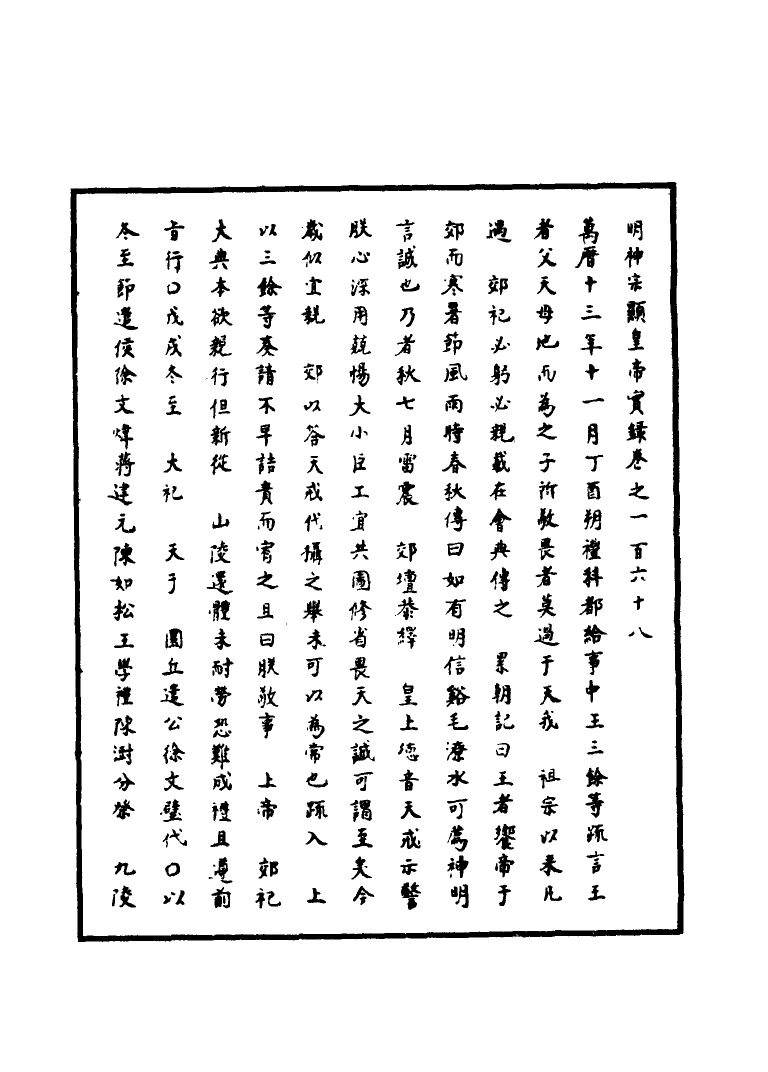 明神宗顯皇帝實錄卷之一百六十八
萬曆十三年十一月丁酉朔禮科都給事中王三餘等疏言王
者父天母地而為之子所敬畏者莫過于天我　祖宗以來凡
遇　郊祀必躬必親載在會典傳之　累朝記曰王者饗帝于
郊而寒暑節風雨時春秋傳曰如有明信谿毛潦水可薦神明
言誠也乃者秋七月雷震　郊壇恭繹　皇上德音天戒示警
朕心深用兢惕大小臣工宜共圖修省畏天之誠可謂至矣今
歲似宜親　郊以答天戒代攝之舉未可以為常也疏入　上
以三餘等奏請不早詰責而宥之且曰朕敬事　上帝　郊祀
大典本欲親行但新從　山陵還體未耐勞恐難成禮且遵前
旨行○戊戌冬至　大祀　天于　圜丘遣公徐文璧代○以
冬至節遣侯徐文煒蔣建元陳如松王學禮陳澍分祭　九陵